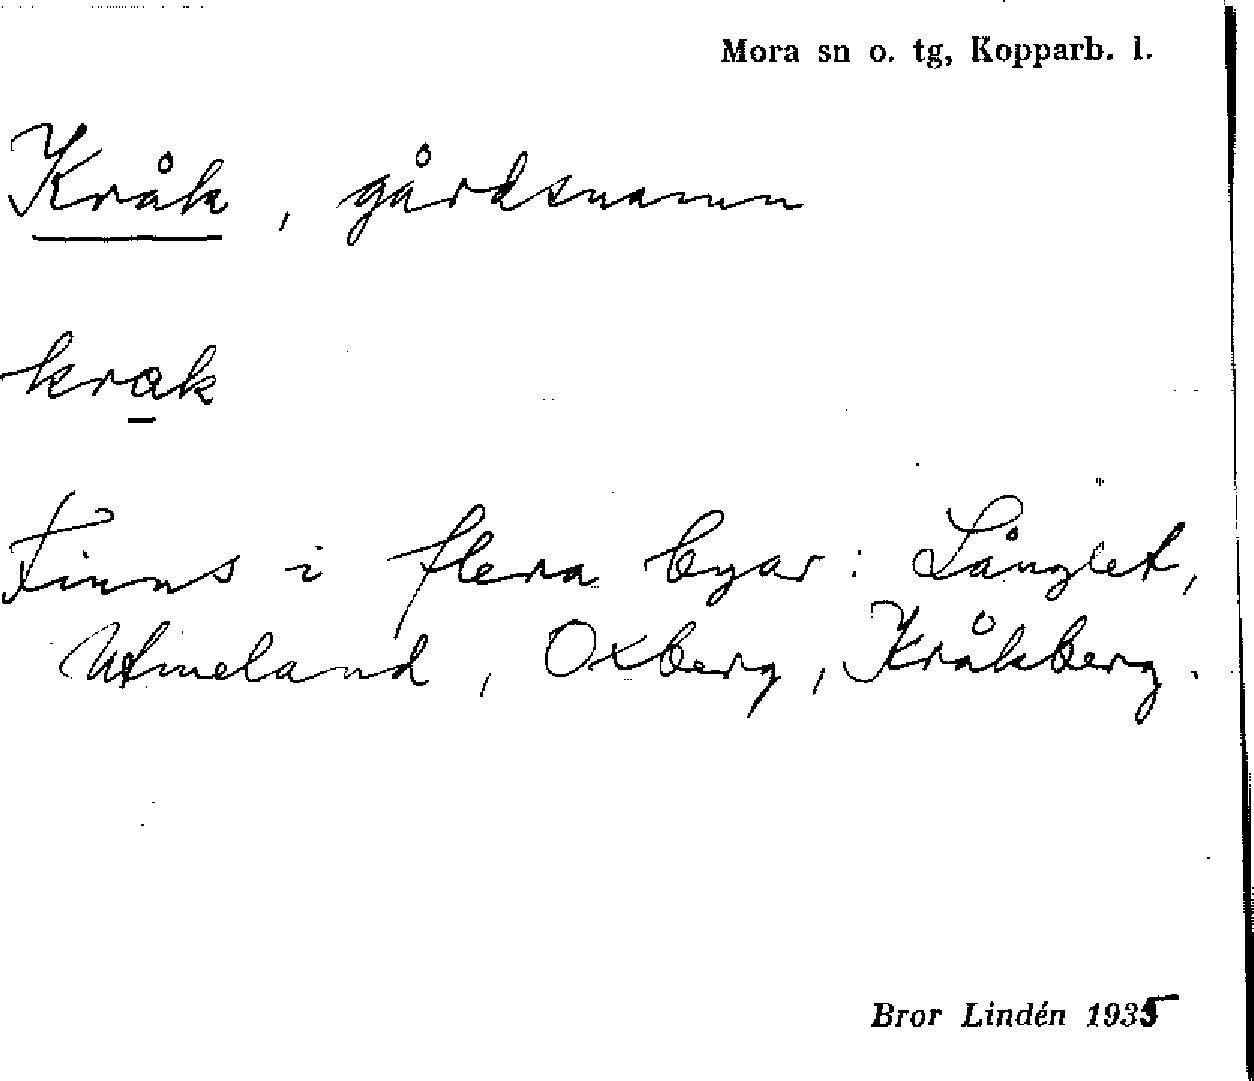 Mora sn o. tg, Kopparb. l.
Kråk, gårdsnamn
krak
Finns i flera byar: Långlet,
Utmeland, Oxberg, Kråkberg.
Bror Lindén 1935